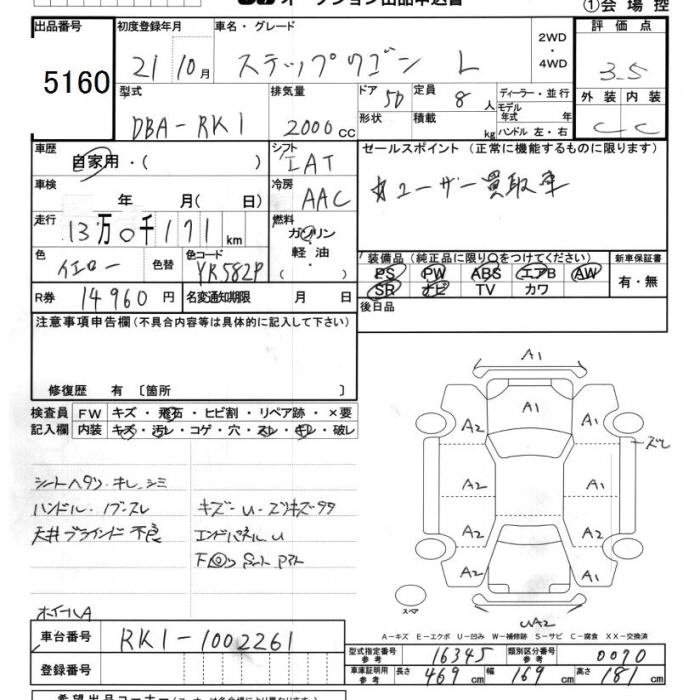 オークション出品申込書
①会場控
出品番号
5160
初度登録年月
21 10月
車名・グレード
ステップワゴン L
2WD
・
4WD
評価点
3.5
型式
DBA-RK1
排気量
2000cc
ドア
5D
形状
定員
8人
積載
kg
ディーラー・並行
モデル
年式 年
ハンドル 左・右
外装 内装
C C
車歴
自家用・( )
シフト
IAT
セールスポイント (正常に機能するものに限ります)
ユーザー買取車
車検
年 月( 日)
冷房
AAC
走行
13万0千171km
燃料
ガソリン
・
軽油
・
( )
色
イエロー
色替
色コード
YR582P
装備品 (純正品に限り○をつけてください)
PS PW ABS エアB AW
SR ナビ TV カワ
新車保証書
有・無
R券
14960円
名変通知期限 月 日
後日品
注意事項申告欄(不具合内容等は具体的に記入して下さい)
修復歴 有〔箇所 〕
検査員
記入欄
FW キズ・飛石・ヒビ割・リペア跡・×要
内装 キズ・汚レ・コゲ・穴・スレ・キレ・破レ
シートヘタリ・キレ、シミ
ハンドル・ノブスレ
天井ブラインド不良
キズー U-
エンドパネル U
ホイールA
A1
A1
A2 A2
A1
A2 A2
A2 A2
A2 A2
スペア
A-キズ E-エクボ U-凹み W-補修跡 S-サビ C-腐食 XX-交換済
車台番号
RK1-1002261
登録番号
型式指定番号
参考
16345
類別区分番号
参考
0070
車庫証明用
参考
長さ 469cm 幅 169cm 高さ 181cm